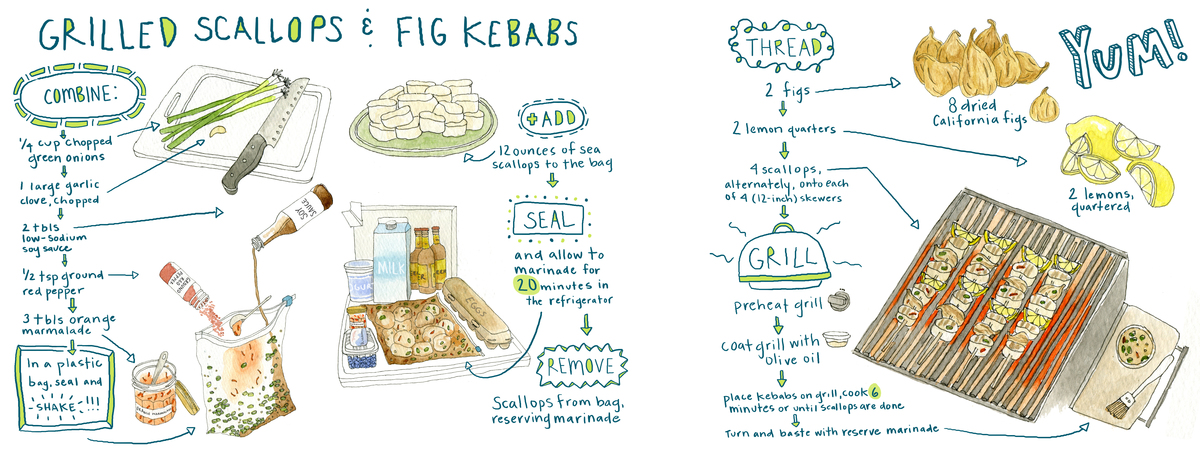 GRILLED SCALLOPS & FIG KEBABS
COMBINE:
1/4 cup chopped
green onions
1 large garlic
clove, chopped
2 tbls
low-sodium
soy sauce
1/2 tsp ground
red pepper
3 tbls orange
marmalade
In a plastic
bag, seal and
SHAKE!!!
SOY
SAUCE
GROUND
RED
PEPPER
ORANGE MARMALADE
+ADD
12 ounces of sea
scallops to the bag
SEAL
and allow to
marinade for
20 minutes in
the refrigerator
MILK
BEER
EGGS
REMOVE
Scallops from bag,
reserving marinade
THREAD
2 figs
2 lemon quarters
4 scallops,
alternately, onto each
of 4 (12-inch) skewers
GRILL
preheat grill
coat grill with
olive oil
place kebabs on grill, cook 6
minutes or until scallops are done
Turn and baste with reserve marinade
8 dried
California figs
YUM!
2 lemons,
quartered